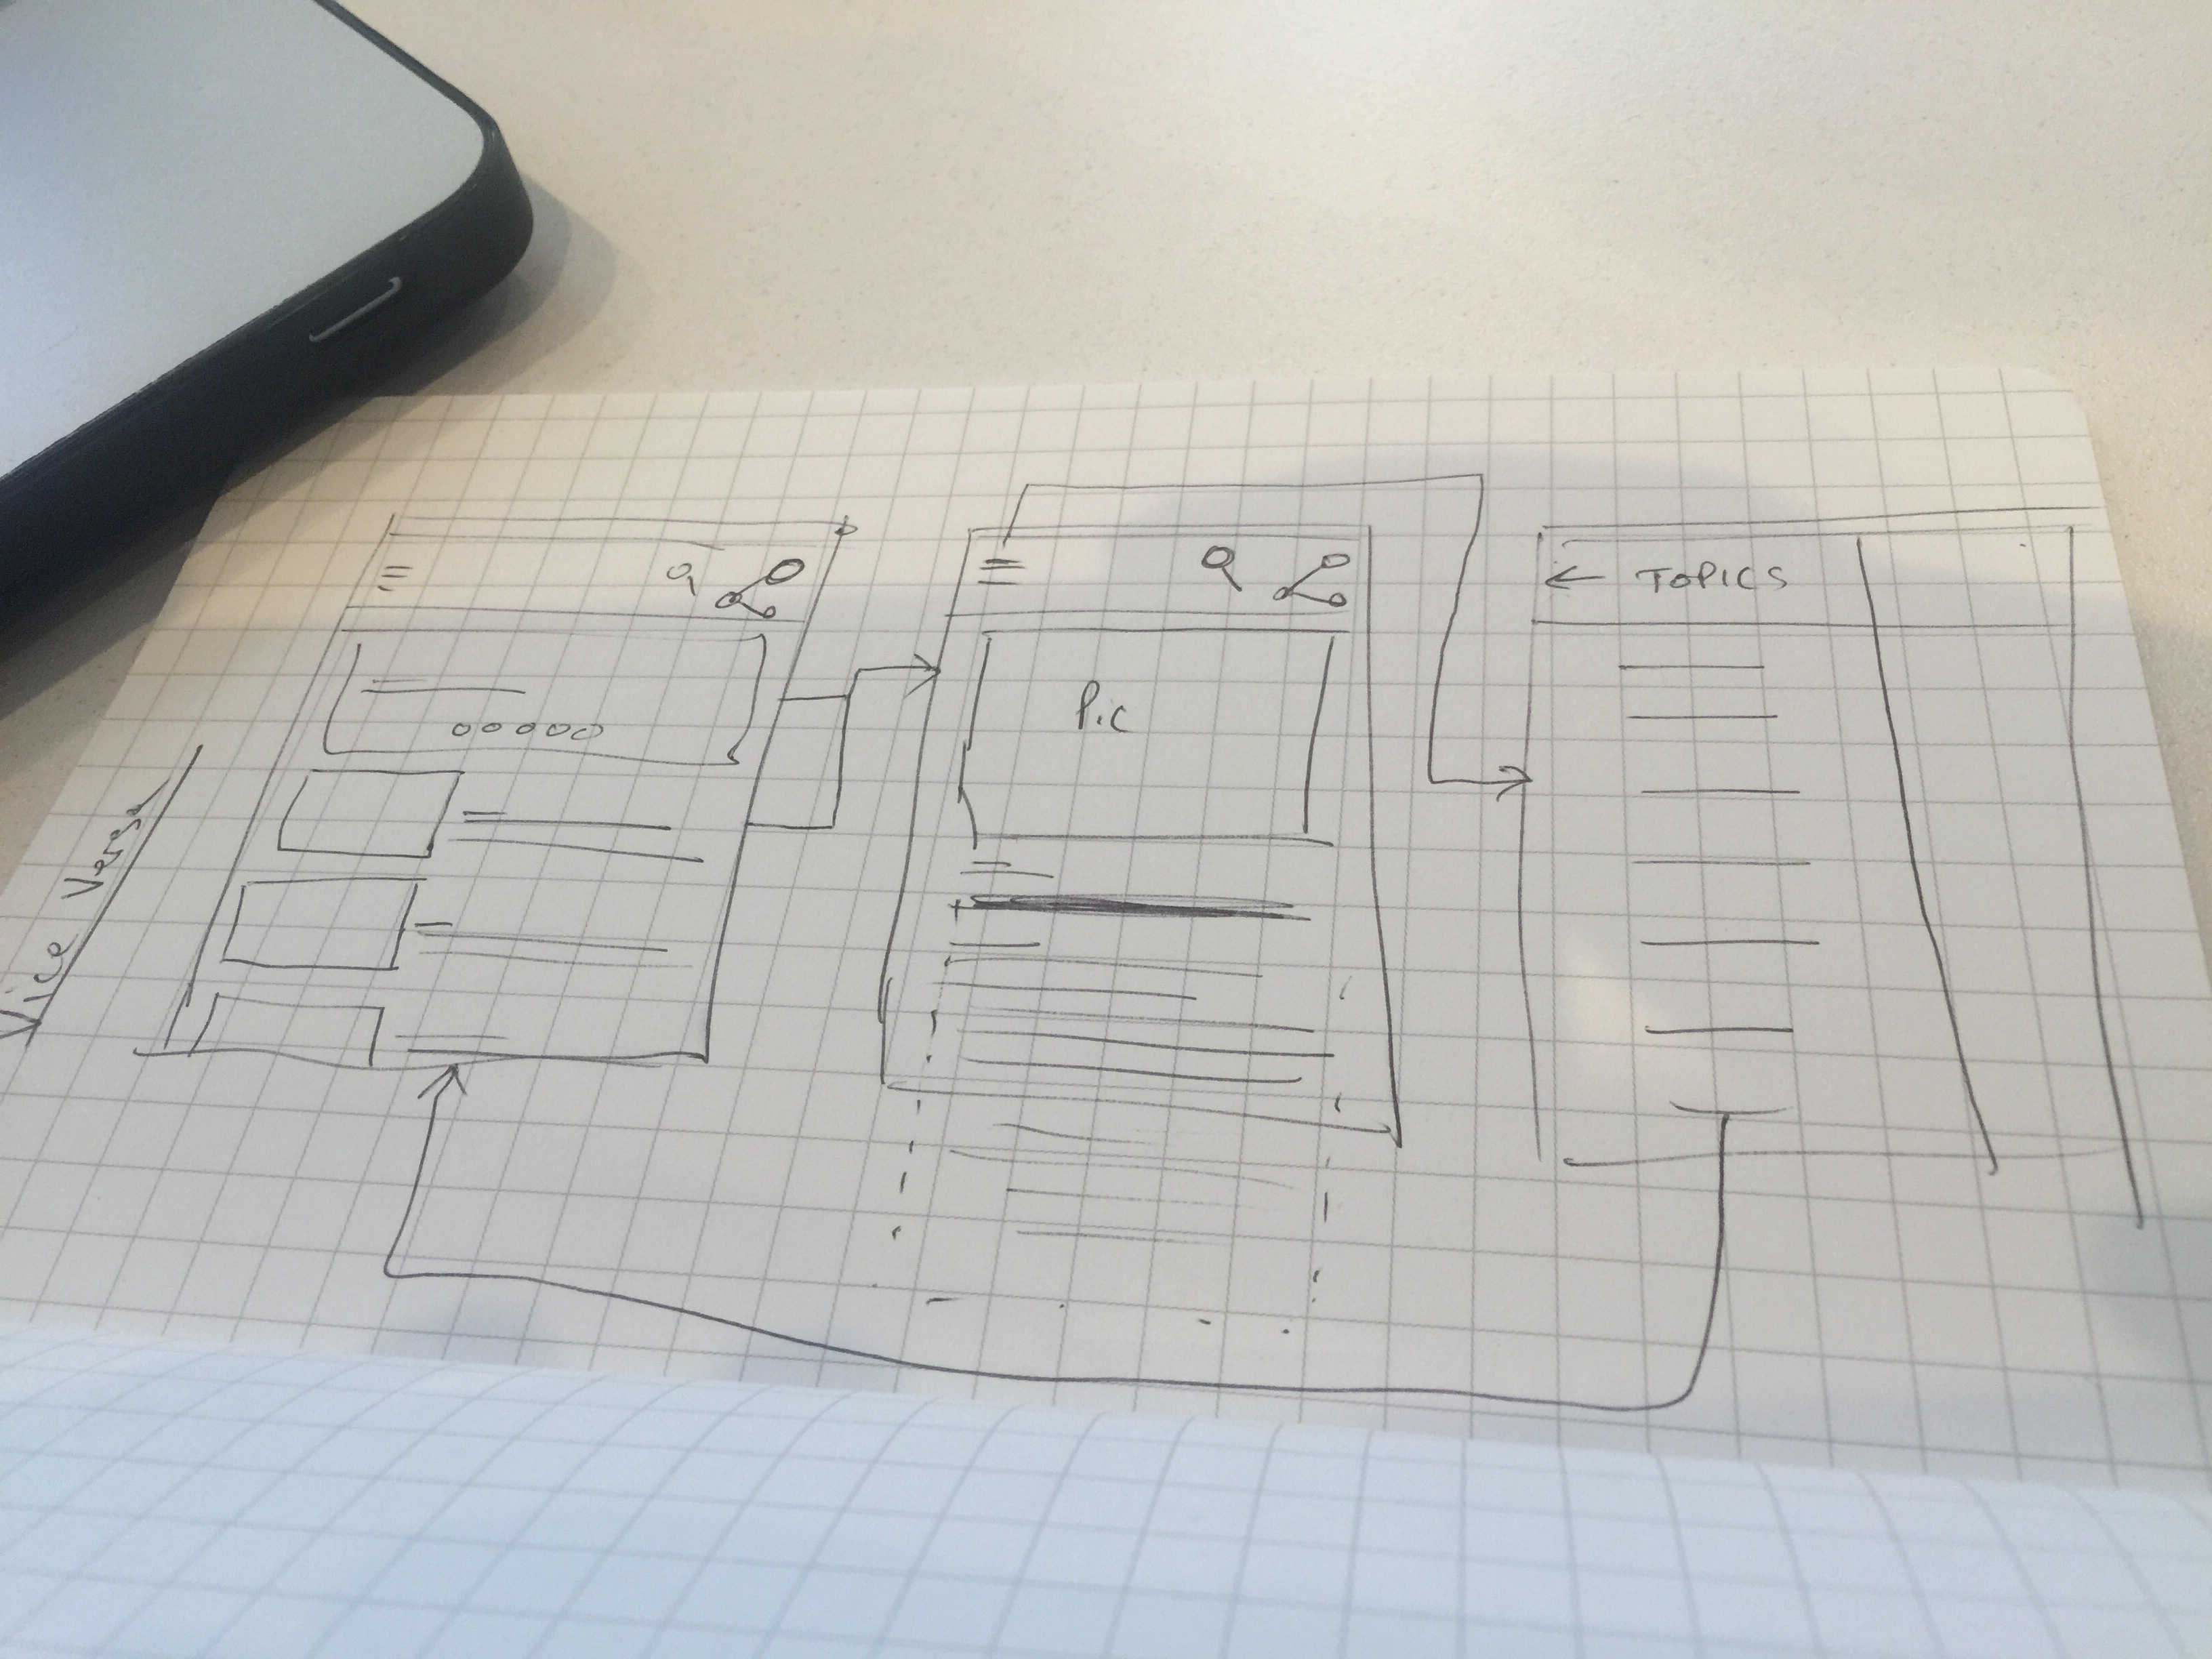 Vice Versa
Pic
← TOPICS